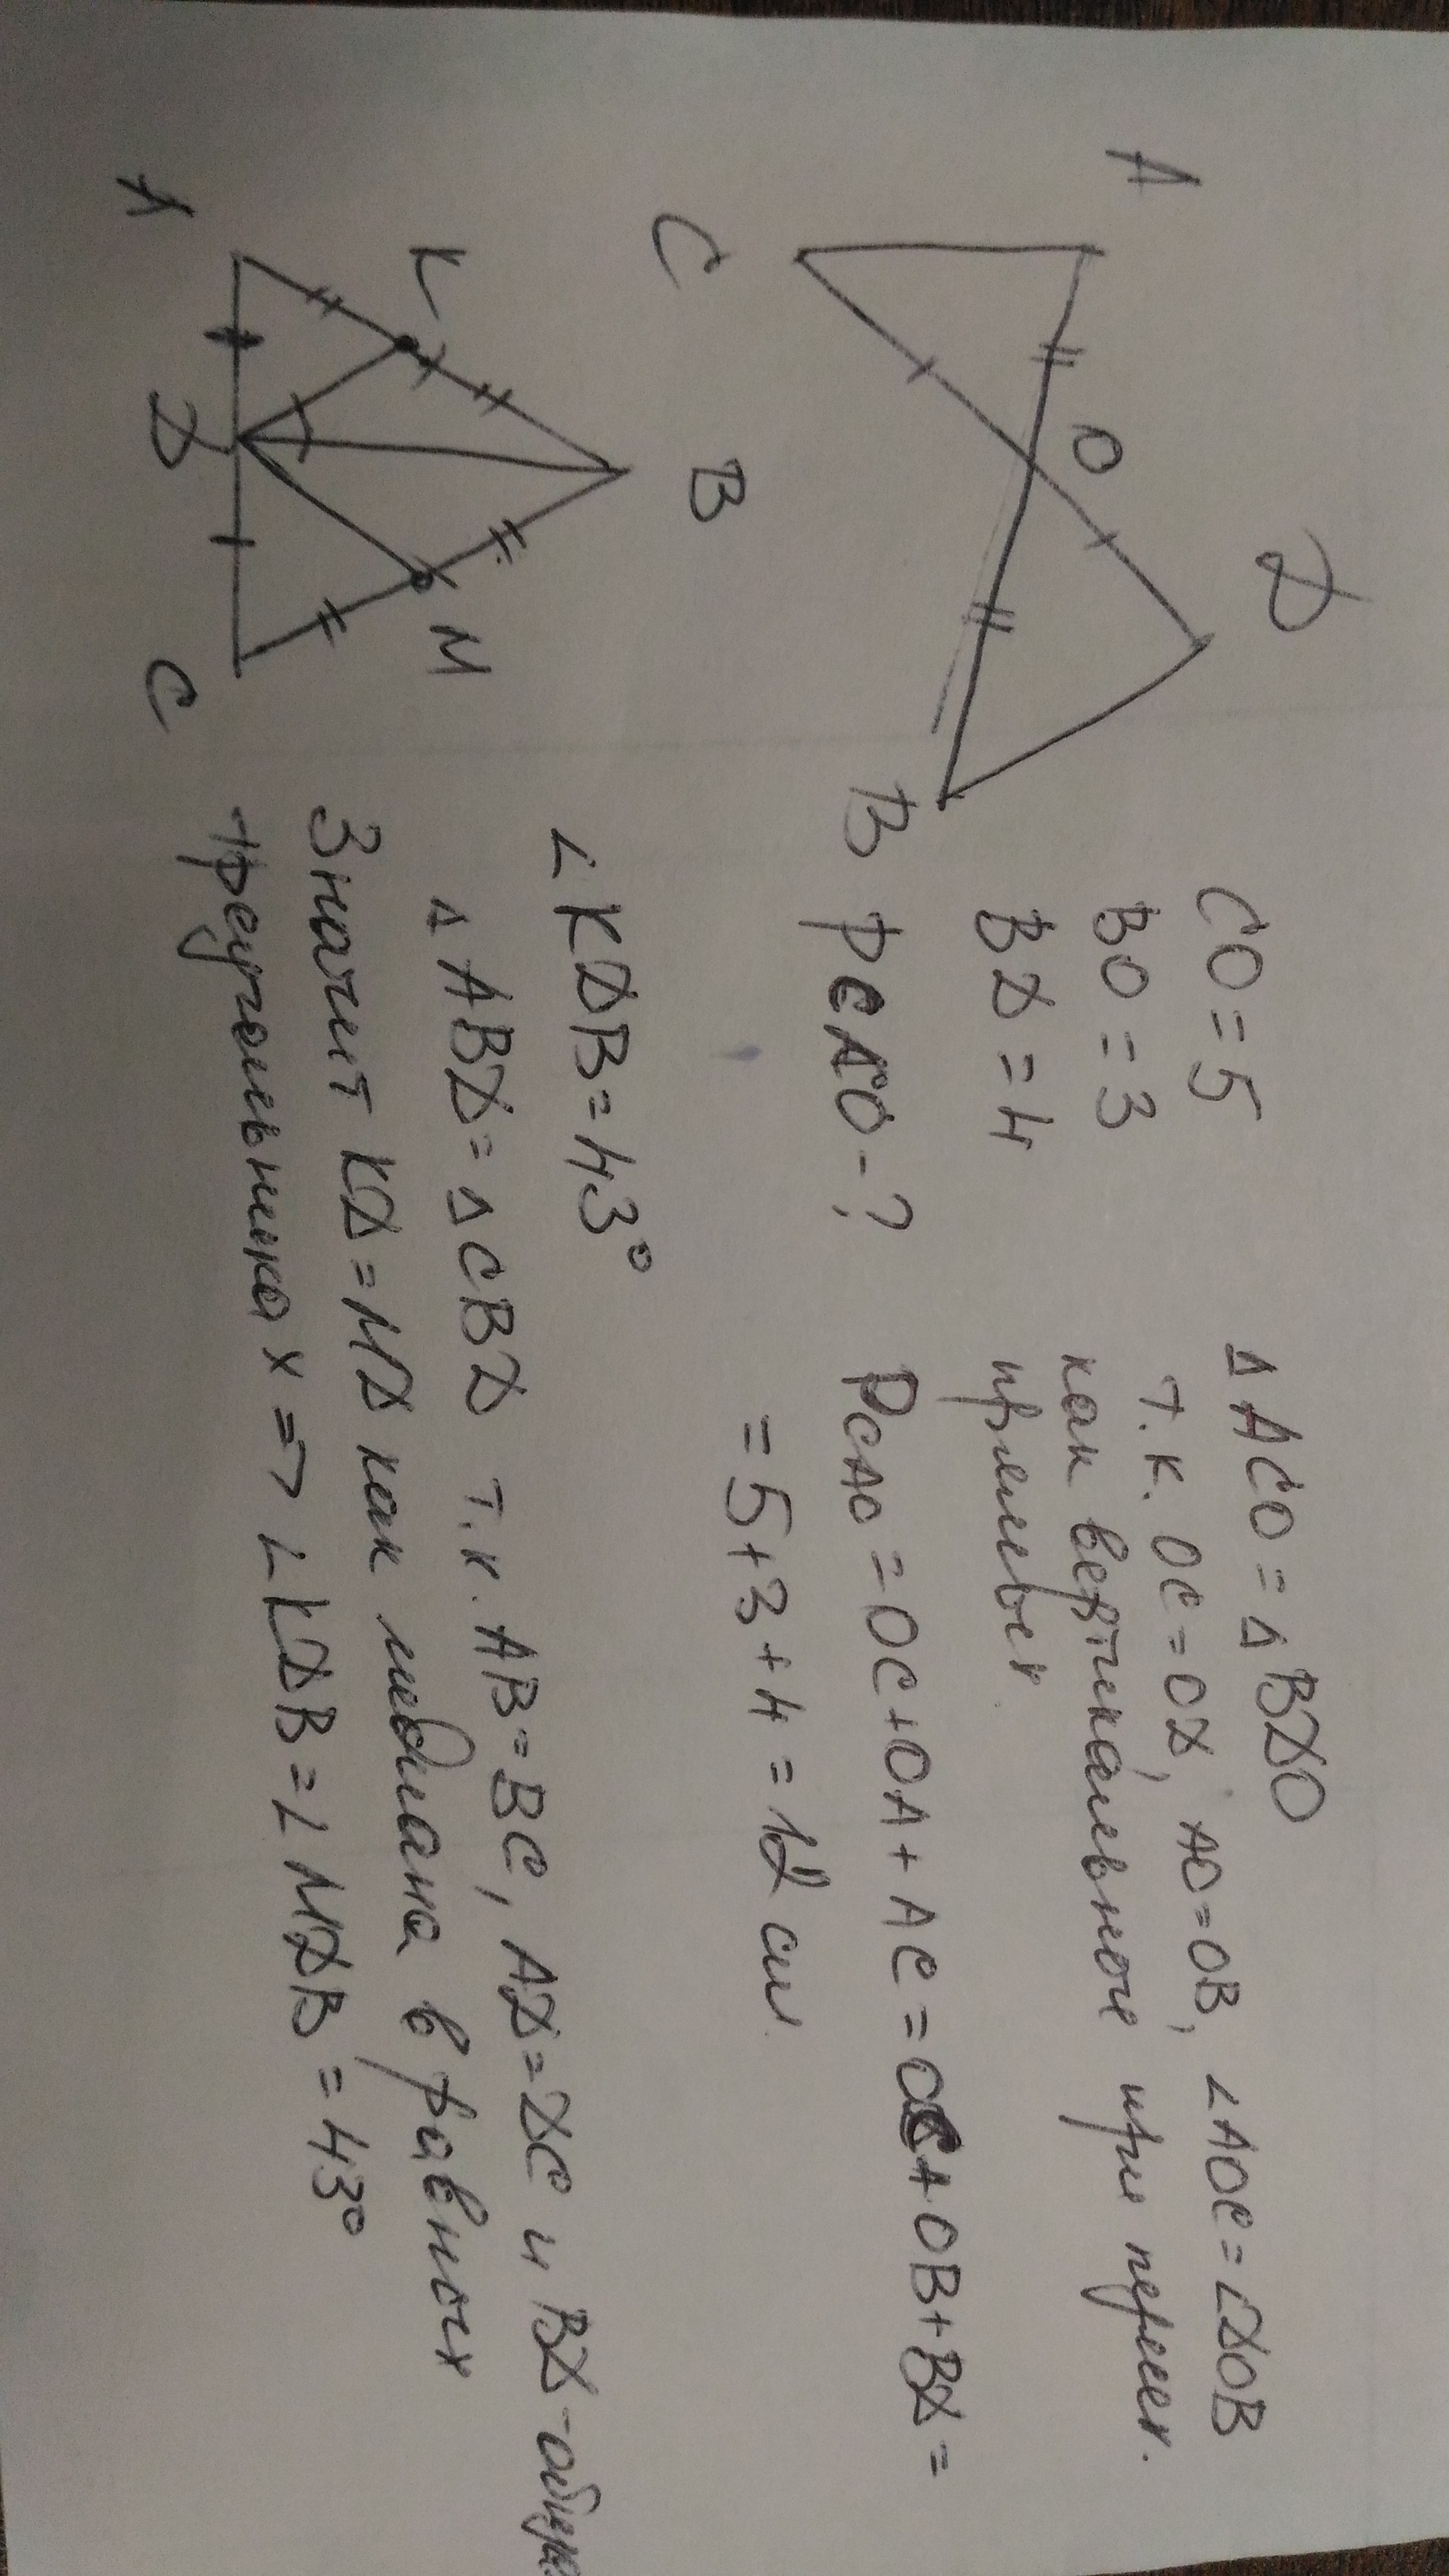 A
D
O
C
B
CO = 5
BO = 3
BD = 4
PCAO - ?
△ ACO = △ BDO
т.к. OC = OD, AO = OB, ∠AOC = ∠DOB
как вертикальные при перес.
прямых.
PCAO = OC + OA + AC = OC + OB + BD =
= 5 + 3 + 4 = 12 см
B
K
M
A
D
C
∠ KDB = 43°
△ ABD = △ CBD т.к. AB = BC, AD = DC и BD - общая
Значит KD = MD как медиана в равных
треугольниках => ∠ KDB = ∠ MDB = 43°